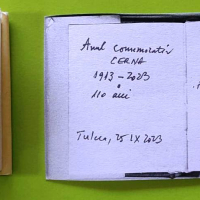 Anul comemorativ
CERNA
1913 – 2023
110 ani
Tulcea, 25 IX 2023